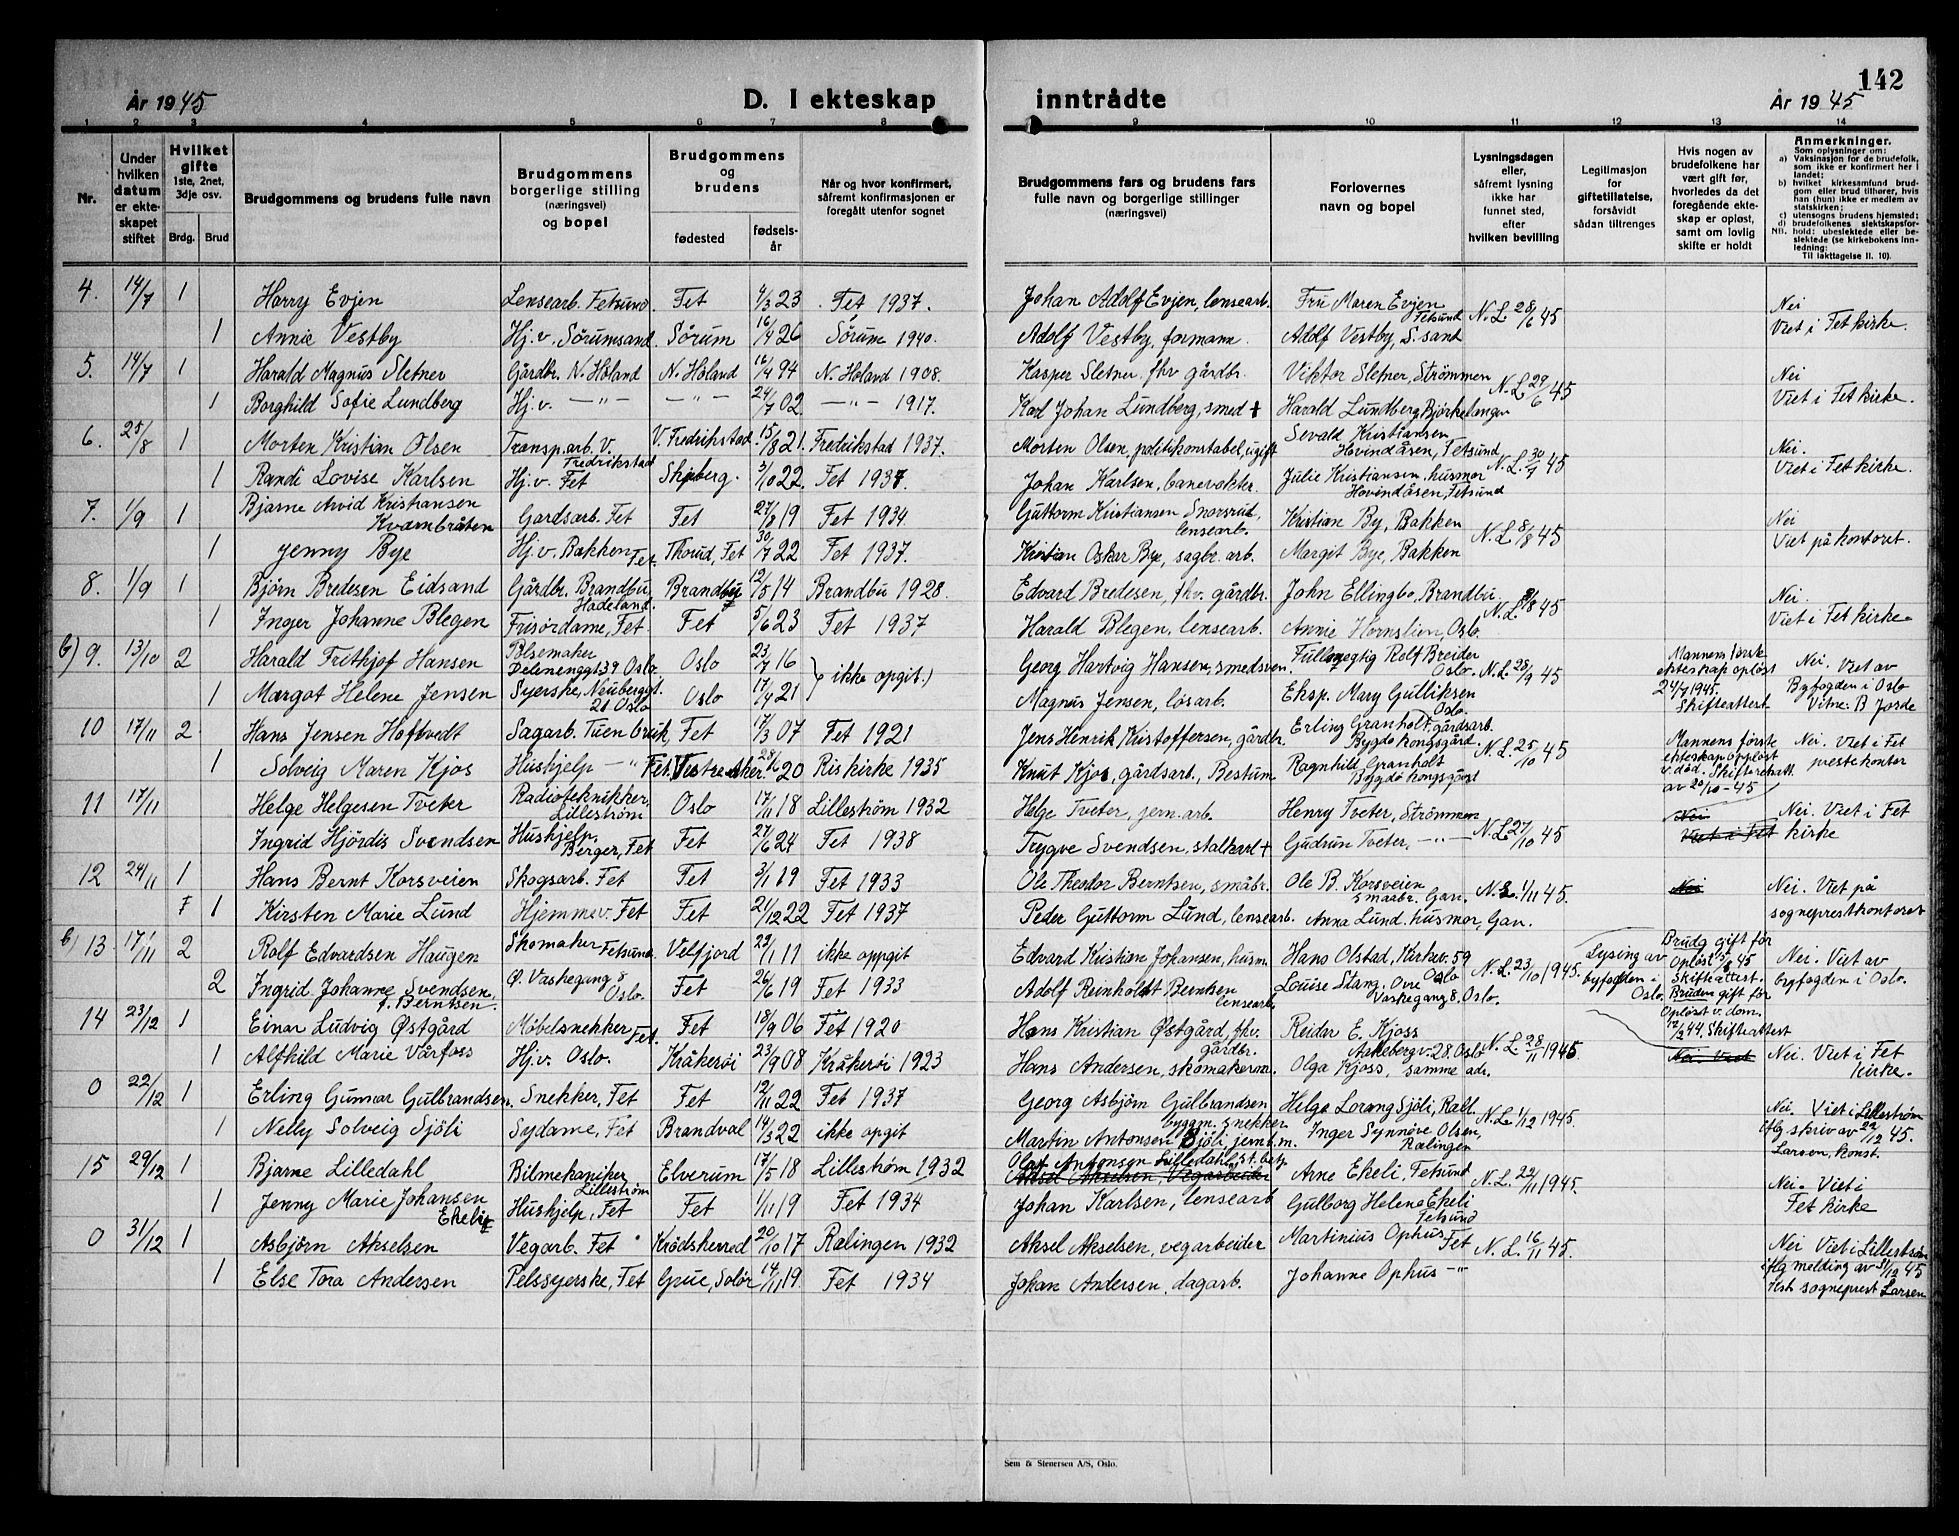 142
År 1945
D. I ekteskap
inntrådte
År 1945
1 2 3 4 5 6 7 8 9 10 11 12 13 14
Nr.
Under hvilken datum er ekteskapet stiftet
Hvilket gifte 1ste, 2net, 3dje osv.
Brdg. Brud
Brudgommens og brudens fulle navn
Brudgommens borgerlige stilling (næringsvei) og bopel
Brudgommens og brudens
fødested
fødselsår
Når og hvor konfirmert, såfremt konfirmasjonen er foregått utenfor sognet
Brudgommens fars og brudens fars fulle navn og borgerlige stillinger (næringsvei)
Forlovernes navn og bopel
Lysningsdagen eller, såfremt lysning ikke har funnet sted, efter hvilken bevilling
Legitimasjon for giftetillatelse, forsåvidt sådan tiltrenges
Hvis nogen av brudefolkene har vært gift før, hvorledes da det foregående ekteskap er opløst, samt om lovlig skifte er holdt
Anmerkninger.
Som oplysninger om:
a) Vaksinasjon for de brudefolk, som ikke er konfirmert her i landet;
b) hvilket kirkesamfund brudgom eller brud tilhører, hvis han (hun) ikke er medlem av statskirken;
c) utensogns brudens hjemsted;
d) brudefolkenes slektskapsforhold: ubeslektede eller beslektede (se kirkebokens innledning:
NB. Til iakttagelse II. 10).
4. 14/7 1 Harry Evjen Lensearb. Fetsund. Fet 4/3 23 Fet 1937. Johan Adolf Evjen, lensearb. Fru Maren Evjen Fetsund N.L. 28/6 45 Nei
1 Annie Vestby Hj.v. Sörumsand Sörum 16/4 26 Sörum 1940. Adolf Vestby, formann. Adolf Vestby, S.sand Viet i Fet kirke.
5. 14/7 1 Harald Magnus Sletner Gårdbr. N. Höland N. Höland 16/4 94 N. Höland 1908. Kasper Sletner fhv gårdbr. Viktor Sletner, Strömmen N.L. 29/6 45 Nei
1 Borghild Sofie Lundberg Hj.v. — " — — " — 24/7 02. — " — 1917. Karl Johan Lundberg, smed + Harald Lundberg, Björkelangen Viet i Fet kirke.
6. 25/8 1 Morten Kristian Olsen Transp.arb. V. Fredrikstad V. Fredrikstad 15/8 21. Fredrikstad 1937. Morten Olsen, politikonstabel, ugift Sevald Kristiansen Hovindåsen, Fetsund N.L. 30/7 45 Nei.
1 Randi Lovise Karlsen Hj.v. Fet Skjeberg. 3/10 22. Fet 1937. Johan Karlsen, banevokter. Julie Kristiansen, husmor Hovindåsen, Fetsund Viet i Fet kirke.
7. 1/9 1 Bjarne Arvid Kristiansen Kvarnbråten Gardsarb. Fet Fet 27/8 19 Fet 1934. Guttorm Kristiansen Snorsrud, lensearb. Kristian By, Bakken N.L. 8/8 45 Nei
1 Jenny Bye Hj.v. Bakken Fet. Thorud, Fet 30/7 22 Fet 1937. Kristian Oskar Bye, sagbr. arb. Margit Bye, Bakken Viet på kontoret.
8. 1/9 1 Bjørn Bredesen Eidsand Gårdbr. Brandbu, Hadeland. Brandbu 12/5 14 Brandbu 1928. Edvard Bredesen, fhv. gårdbr. John Ellingbo, Brandbu. N.L. 8/8 45 Nei.
1 Inger Johanne Blegen Frisördame, Fet. Fet 5/6 23 Fet 1937 Harald Blegen, lensearb. Annie Hornslien, Oslo. Viet i Fet kirke.
b) 9. 13/10 2 Harald Frithjof Hansen Pölsemaker Delenenggt 39 Oslo. Oslo 23/7 16 ikke opgit.) Georg Hartvig Hansen, smedsven Fullmegtig Rolf Breider Oslo. N.L. 28/9 45 Mannens første ekteskap opløst 24/7 1945. Skifteattest. Nei. Viet av Byfogden i Oslo
1 Margot Helene Jensen Syerske, Neubergt. 21 Oslo Oslo 17/4 21 Magnus Jensen, lösarb. Eksp. Mary Gulliksen Oslo. Vitne: B Jorde
10 17/11 2 Hans Jensen Hoftvedt Sagarb. Tuen bruk, Fet 17/3 07 Fet 1921 Jens Henrik Kristoffersen, gårdbr. Erling Granholt, gårdsarb. Bygdö kongsgård N.L. 25/10 45 Mannens første ekteskap opløst v. död. Skifterett. av 20/10-45 Nei. Viet i Fet prestekontor
1 Solveig Maren Kjos Hushjelp — " Fet. Vestre Aker 28/2 20 Ris kirke 1935 Knut Kjos, gårdsarb., Bestum Ragnhild Granholt Bygdö kongsgård
11 17/11 Helge Helgesen Tveter Radiotekniker, Lilleström Oslo 17/11 18 Lilleström 1932 Helge Tveter, jern.arb. Henry Tveter, Strömmen N.L. 27/10 45 Nei Nei. Viet i Fet
Ingrid Hjördis Svendsen Hushjelp, Berger, Fet Fet 27/6 24 Fet 1938 Trygve Svendsen, stalkarl + Gudrun Tveter, — " — Viet i Fet kirke
12 24/11 1 Hans Bernt Korsveien Skogsarb. Fet Fet 3/11 19 Fet 1933 Ole Theodor Berntsen, småbr. Ole B. Korsveien smaabr. Gan. N.L. 1/11 45. Nei Nei. Viet på
F 1 Kirsten Marie Lund Hjemmev. Fet Fet 21/12 22 Fet 1937 Peder Guttorm Lund, lensearb. Anna Lund, husmor, Gan. sogneprestkontoret
b) 13 17/11 2 Rolf Edvardsen Haugen Skomaker Fetsund Velfjord 23/1 11 ikke oppgit Edvard Kristian Johansen, husm. Hans Olstad, Kirkev. 59 Oslo N.L. 23/10 1945. Lysing av byfogden i Oslo. Brudg gift før Opløst 3/8 45 Skifteattest. Nei. Viet av
2 Ingrid Johanne Svendsen f. Berntsen Ø. Vaskegang 8 Oslo. Fet 26/6 19 Fet 1933 Adolf Reinholdt Berntsen lensearb. Louise Stang, Övre Vaskegang 8, Oslo. Bruden gift før Opløst v. dom. 12/2 44. Skifteattest byfogden i Oslo.
14 23/12 1 Einar Ludvig Østgård Møbelsnekker Fet. Fet 18/9 06 Fet 1920 Hans Kristian Østgård, fhv. gårdbr. Reidar E. Kjoss Askebergv. 28. Oslo N.L. 28/11 1945
1 Alfhild Marie Vårfoss Hj.v. Oslo. Kråkerøi 23/9 08 Kråkerøi 1923 Hans Andersen, skomakerm. Olga Kjoss, samme adr. Nei. Viet Nei. Viet i Fet kirke.
0 22/12 1 Erling Gunnar Gulbrandsen. Snekker, Fet Fet 12/11 22 Fet 1937 Georg Asbjørn Gulbrandsen byggm. snekker Helge Lorang Sjöli, Ræl. N.L. 1/12 1945. Nei. Viet i Lilleström
1 Nelly Solveig Sjöli Sydame, Fet Brandval 14/3 22 ikke opgit Martin Antonsen Sjöli, jernb.m. Inger Synnöve Olsen, Rælingen iflg skriv av 22/12 45. Larsen, konst.
15 29/12 1 Bjarne Lilledahl Bilmekaniker Lilleström Elverum 17/5 18 Lillestrøm 1932 Olaf Antonsen Lilledahl, st.betj. Aksel Akselsen, Vegarbeider Arne Ekeli, Fetsund N.L. 22/11 1945. Nei. Viet i
1 Jenny Marie Johansen Ekeli Hushjelp, Fet Fet 1/11 19 Fet 1934 Johan Karlsen, lensearb Gulborg Helene Ekeli Fetsund Fet kirke
0 31/12 1 Asbjörn Akselsen Vegarb. Fet Krødsherred 20/10 17 Rælingen 1932 Aksel Akselsen, vegarbeider Martinius Ophus Fet N.L. 16/11 45. Nei Viet i Lillestrøm
1 Else Tora Andersen Pelssyerske, Fet Grue, Solør 14/11 19. Fet 1934 Johan Andersen, dagarb. Johanne Ophus — " iflg melding av 31/12 45 sogneprest Larsen
Sem & Stenersen A/S, Oslo.